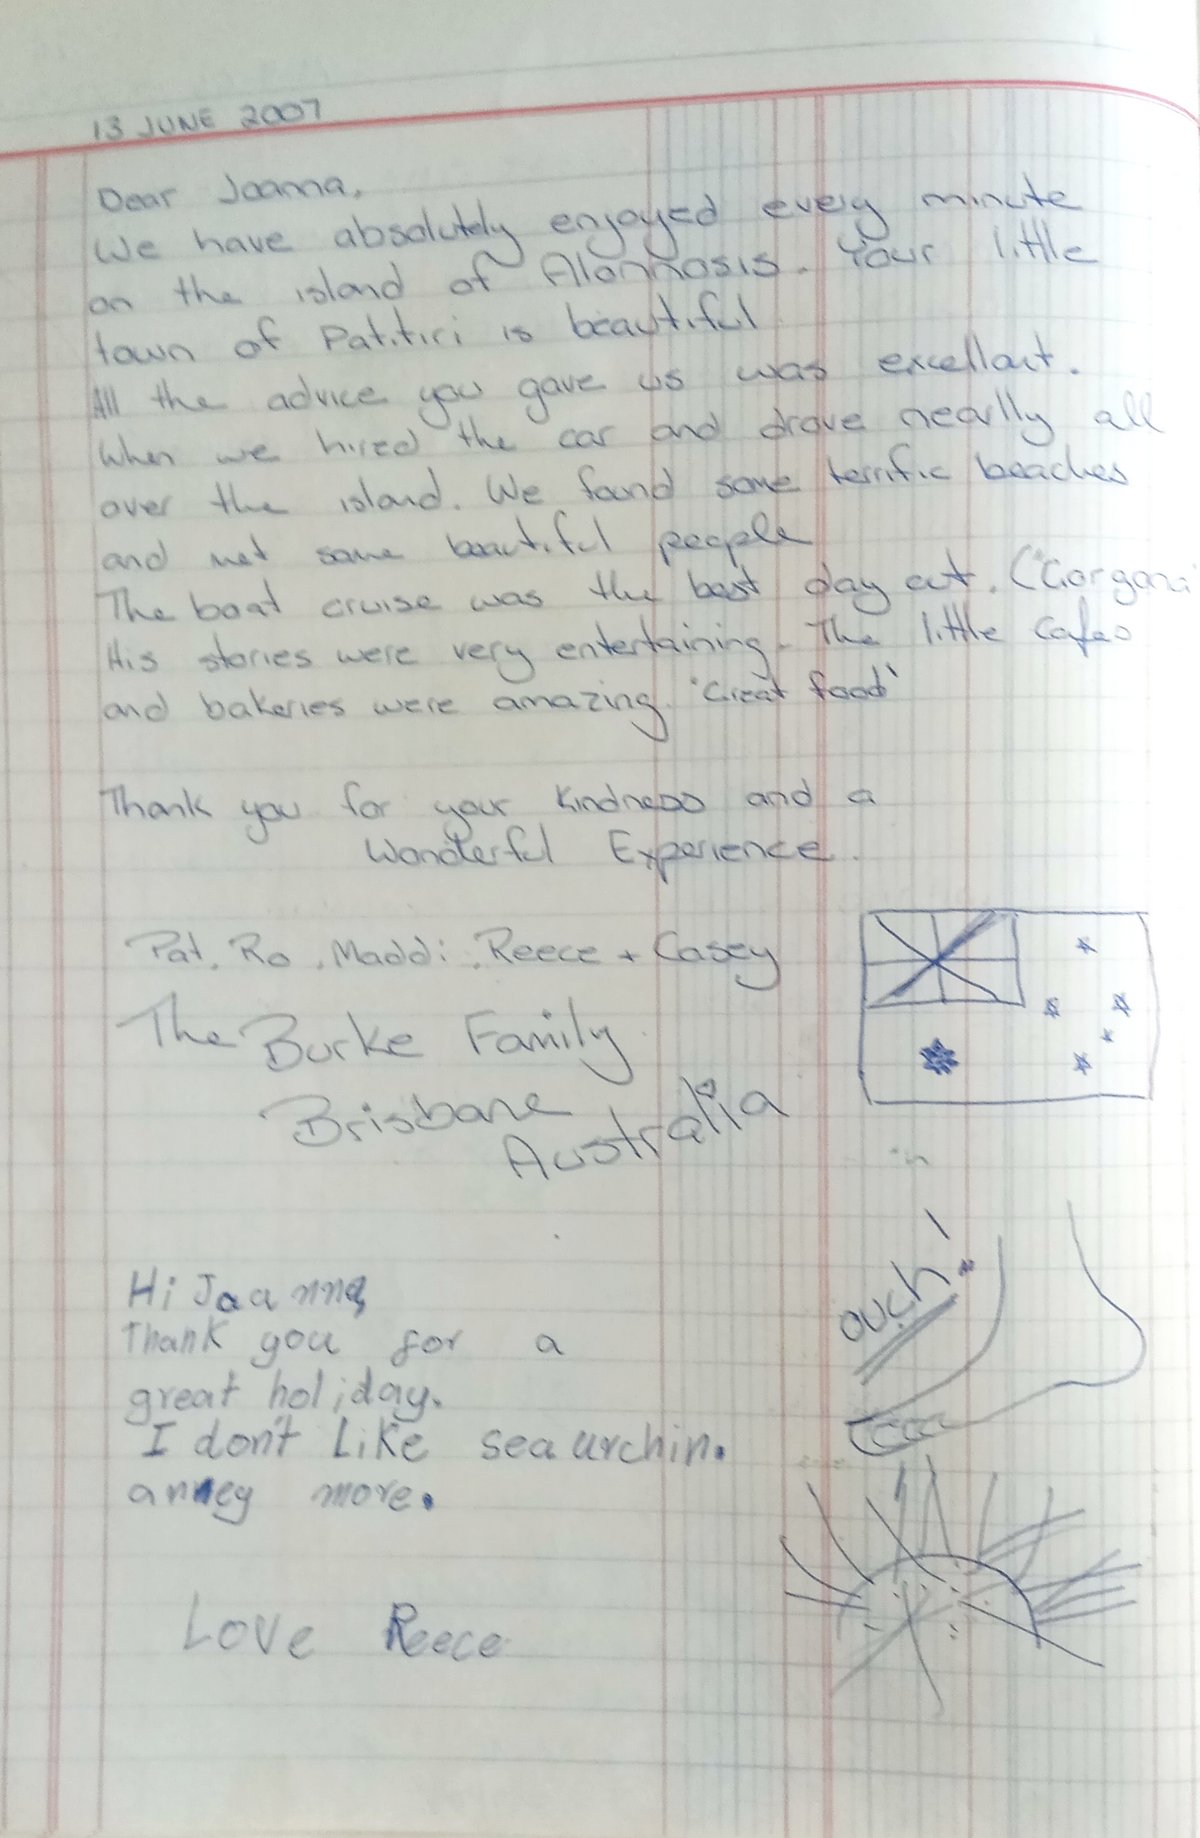 13 JUNE 2007
Dear Joanna,
We have absolutely enjoyed every minute
on the island of Alonnosis. Your little
town of Patitiri is beautiful
All the advice you gave us was excellant.
When we hired the car and drove nearlly all
over the island. We found some terrific beaches
and met some beautiful people
The boat cruise was the best day out. ("Gorgona
His stories were very entertaining. The little cafes
and bakeries were amazing. 'Great food'
Thank you for your kindness and a
Wonderful Experience.
Pat, Ro, Maddi, Reece + Casey
The Burke Family
Brisbane
Australia
ouch!
Hi Joanna,
Thank you for a
great holiday.
I don't Like sea urchin.
anney more.
Love Reece